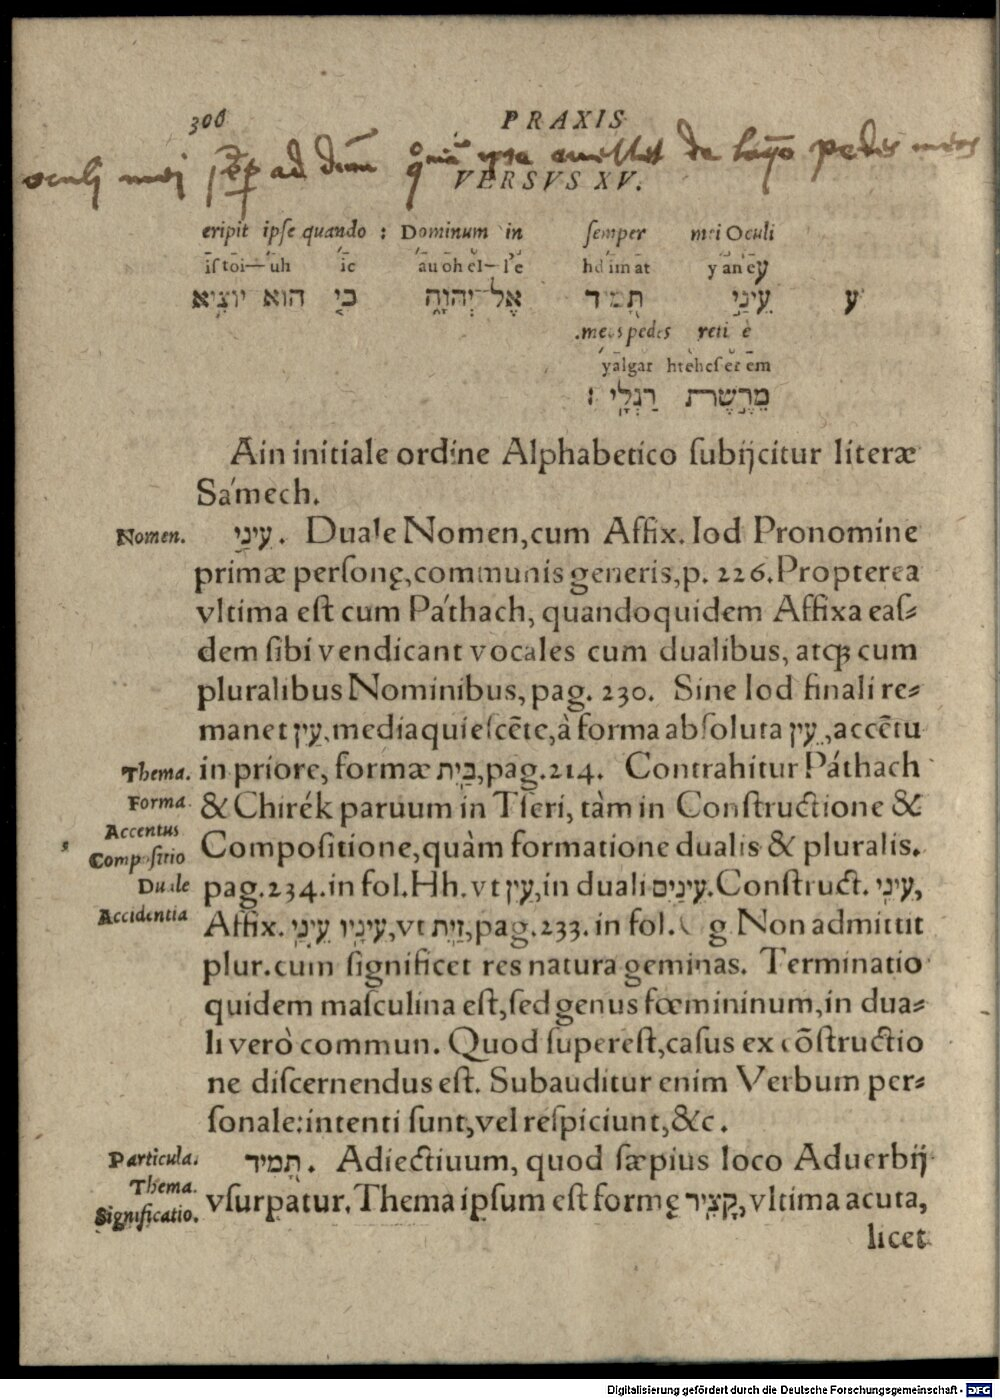 306 PRAXIS
oculi mei sēp ad dūm qm̄ ipse euellet de laq̄o pedes meos
VERSVS XV.
eripit ipſe quando : Dominum in ſemper mei Oculi
עֵינַי תָּמִיד אֶל־יְהוָֹה כִּי הוּא יוֹצִיא ע
.meos pedes reti è
yālgar htehcſer ēm
מֵרֶשֶׁת רַגְלָי׃
Ain initiale ordine Alphabetico ſubijcitur literæ
Sámech.
Nomen. עֵינַי. Duale Nomen, cum Affix. Iod Pronomine
primæ perſonę, communis generis, p. 226. Propterea
vltima eſt cum Páthach, quandoquidem Affixa eaſ⸗
dem ſibi vendicant vocales cum dualibus, atq; cum
pluralibus Nominibus, pag. 230. Sine Iod finali re⸗
manet עֵין, media quieſcēte, à forma abſoluta עַיִן, accētu
Thema. in priore, formæ בַּיִת, pag. 214. Contrahitur Páthach
Forma. & Chirék paruum in Tſeri, tàm in Conſtructione &
Accentus
Compoſitio Compoſitione, quàm formatione dualis & pluralis.
Duale pag. 234. in fol. Hh. vt עֵין, in duali עֵינַיִם. Conſtruct. עֵינֵי,
Accidentia Affix. עֵינַי עֵינָיו, vt זַיִת, pag. 233. in fol. g Non admittit
plur. cum ſignificet res natura geminas. Terminatio
quidem maſculina eſt, ſed genus fœmininum, in dua⸗
li verò commun. Quod ſupereſt, caſus ex cōſtructio
ne diſcernendus eſt. Subauditur enim Verbum per⸗
ſonale: intenti ſunt, vel reſpiciunt, &c.
Particula. תָּמִיד. Adiectiuum, quod ſæpius loco Aduerbij
Thema.
Significatio. vſurpatur. Thema ipſum eſt formę קָצִיר, vltima acuta,
licet